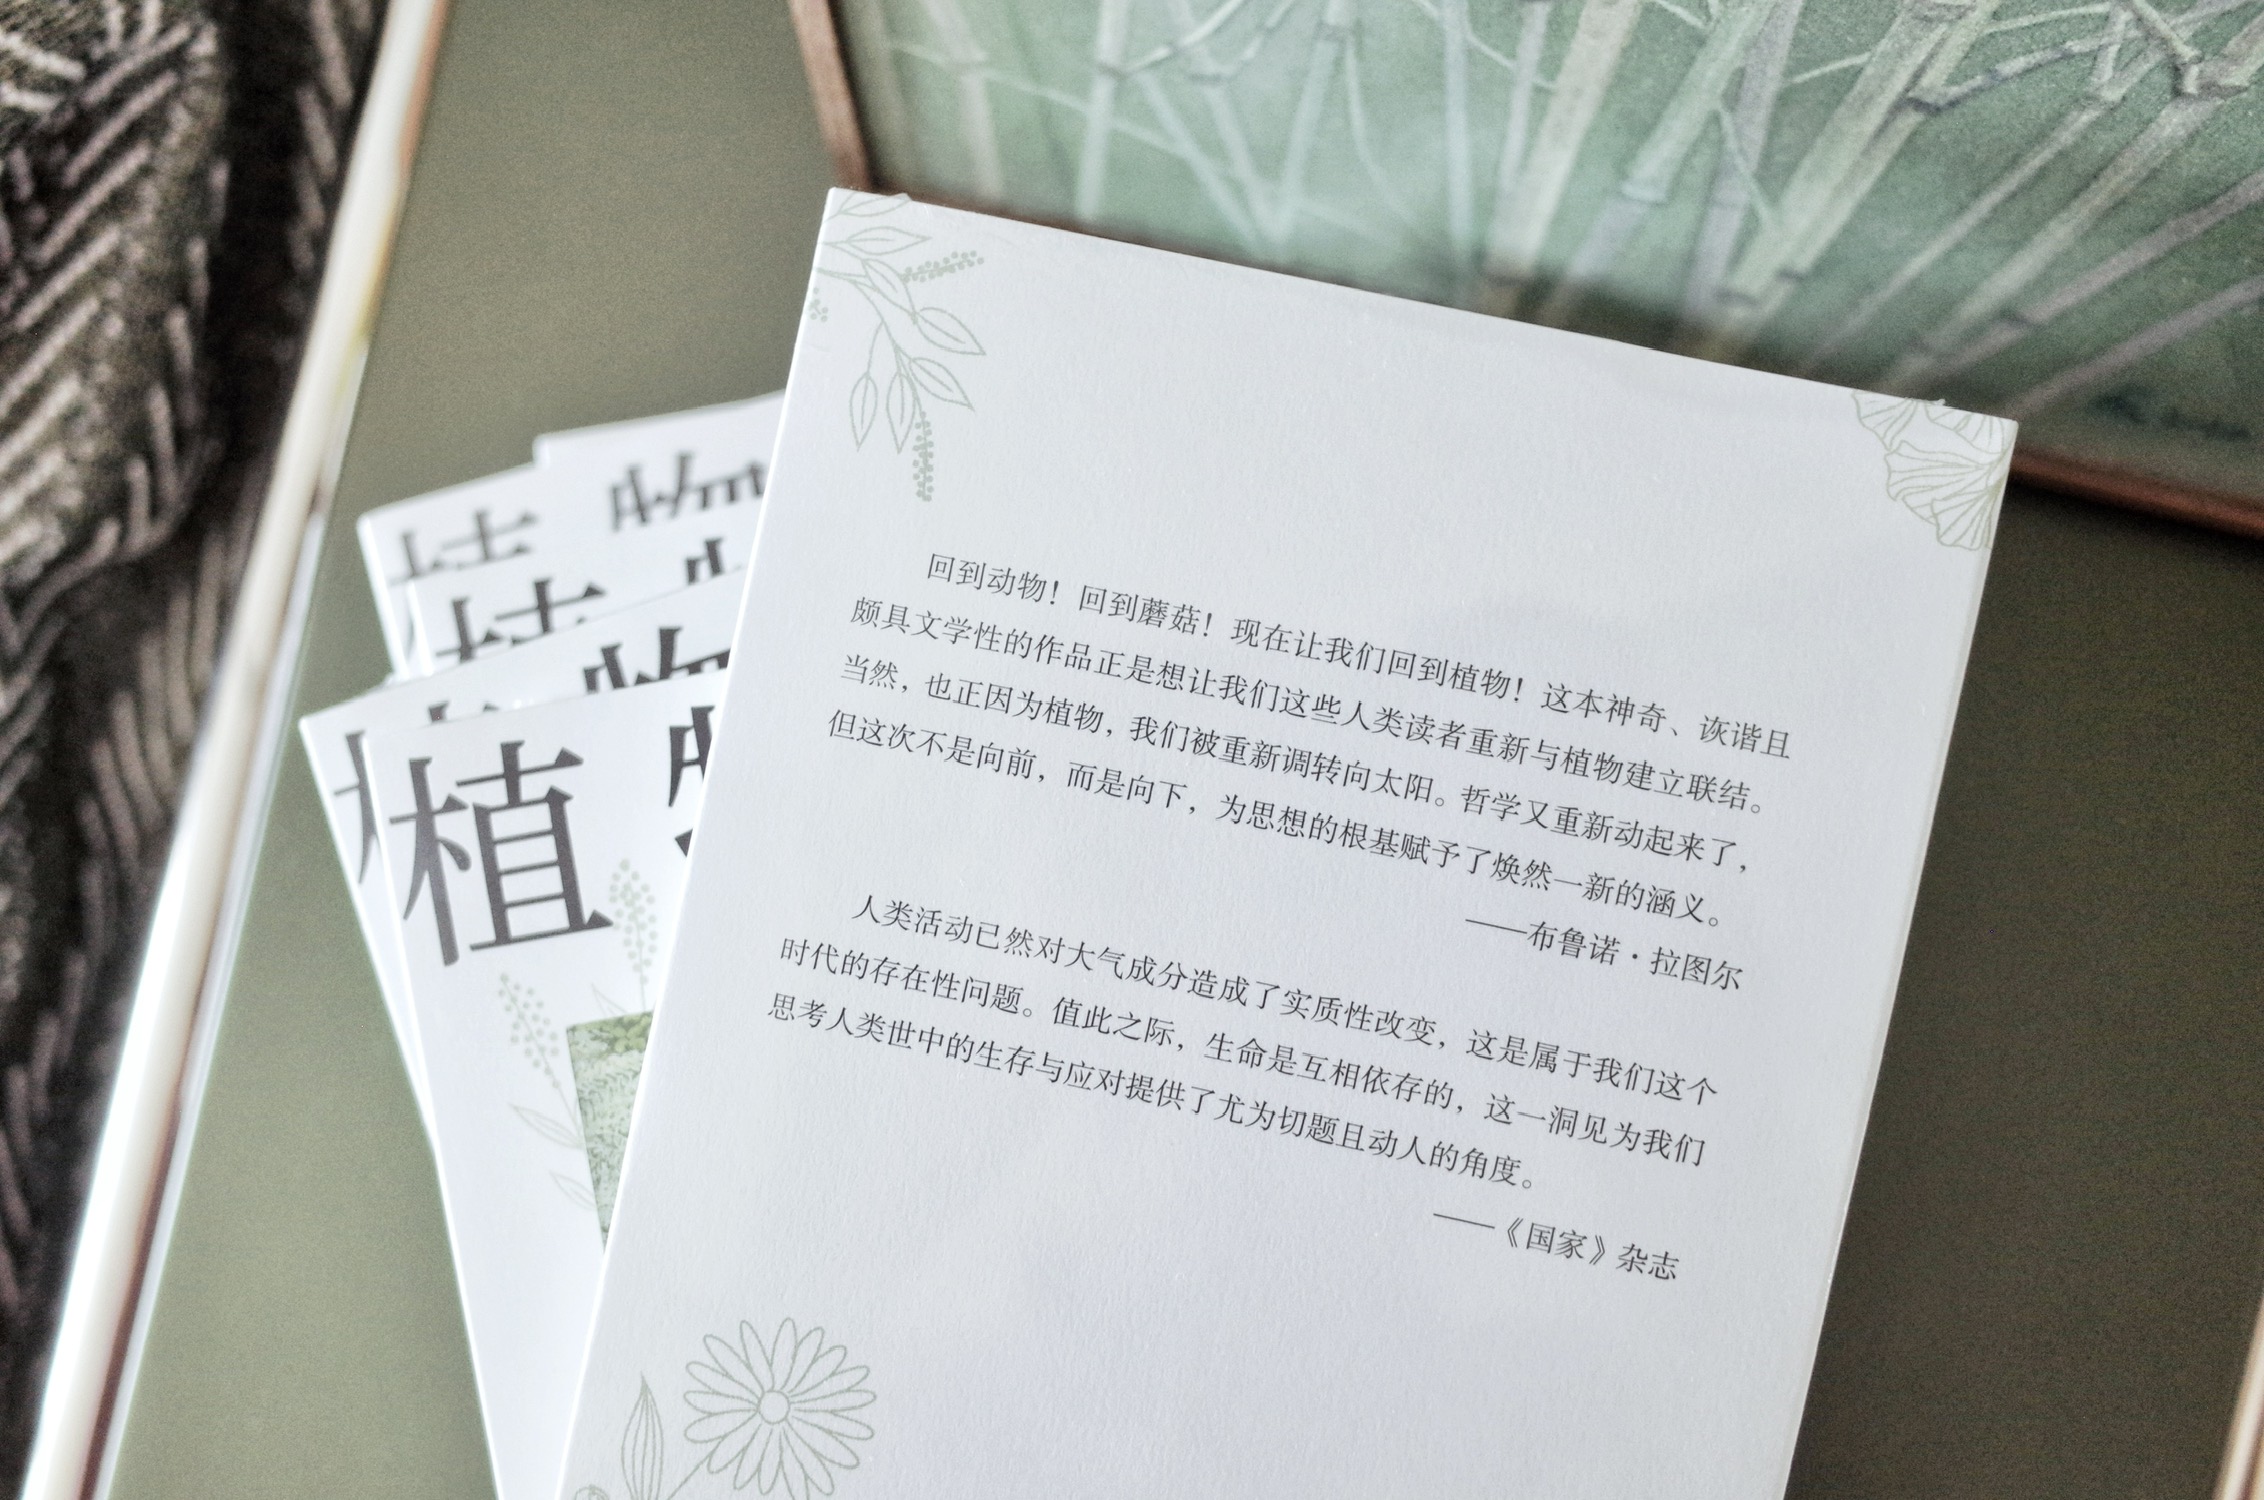 植物
植
植物
植
植
回到动物！回到蘑菇！现在让我们回到植物！这本神奇、诙谐且
颇具文学性的作品正是想让我们这些人类读者重新与植物建立联结。
当然，也正因为植物，我们被重新调转向太阳。哲学又重新动起来了，
但这次不是向前，而是向下，为思想的根基赋予了焕然一新的涵义。
——布鲁诺·拉图尔
人类活动已然对大气成分造成了实质性改变，这是属于我们这个
时代的存在性问题。值此之际，生命是互相依存的，这一洞见为我们
思考人类世中的生存与应对提供了尤为切题且动人的角度。
——《国家》杂志